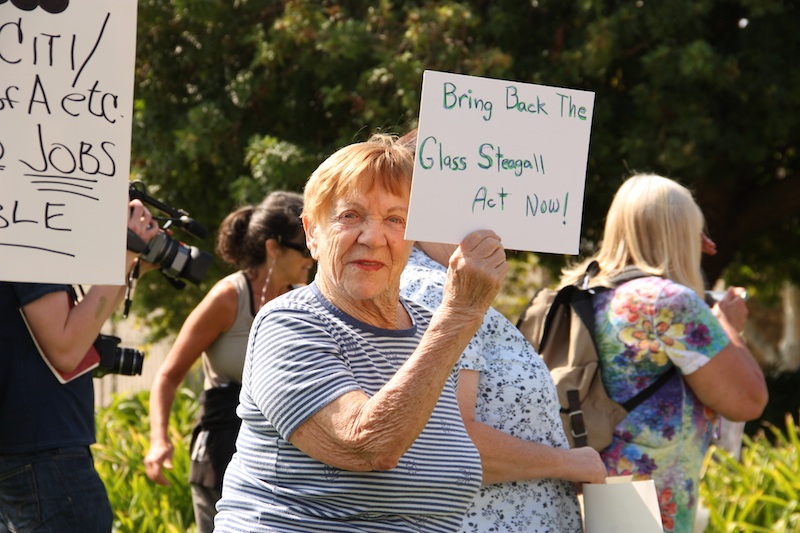 CITI/
of A etc.
JOBS
BLE
Bring Back The
Glass Steagall
Act Now!